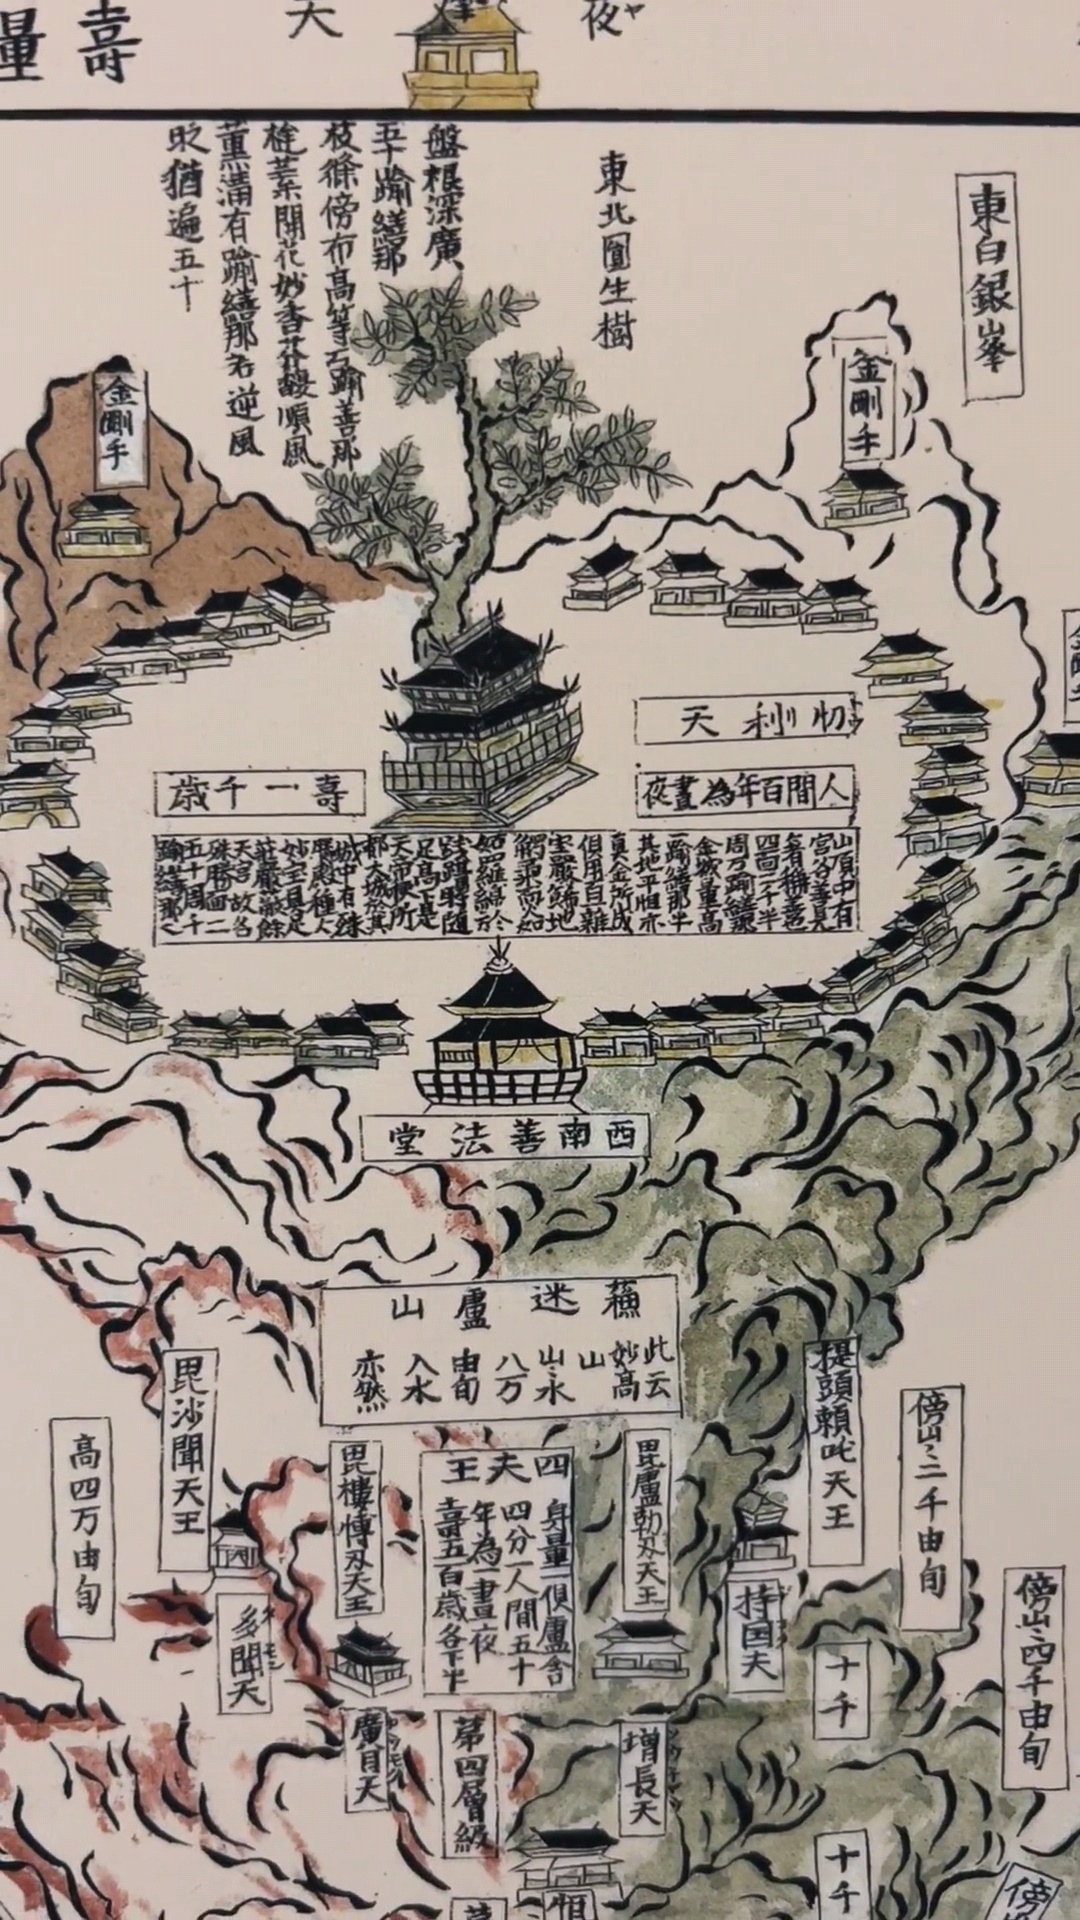 壽
量
天
夜ヤ
東白銀峯
東北圓生樹
盤根深廣
五十踰繕那
枝條傍布高等百踰善那
挺葉開花妙香芬馥順風
薰滿百踰繕那若逆風
猶遍五十
金剛手
金剛手
忉利天
人間百年為晝夜
壽一千歲
山頂中有
宮名善見
四面二千半
周万踰繕那
金城量高
一踰繕那半
其地平坦亦
真金所成
俱用百雜
宝嚴飾地
觸柔耎如
妬羅綿於
踐躡時隨
足高下是
天帝釋所
都大城於其
城中有殊
勝殿種人
妙宝具足
莊嚴蔽餘
天宮故名
殊勝面二
五十周千
踰繕那
西南善法堂
蘓迷盧山
此云
妙高
山
山水
八万
由旬
入水
亦然
提頭賴吒天王
傍山二千由旬
毘盧勒叉天王
四天王
身量一俱盧舍
四分一人間五十
年為一晝夜
壽五百歲各下半
毘樓博叉天王
毘沙聞天王
高四万由旬
傍山四千由旬
持国天
十千
多聞天
增長天
第四層級
廣目天
十千
傍